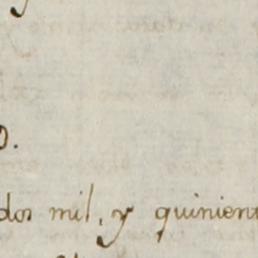 o.
dos mil, y quinien